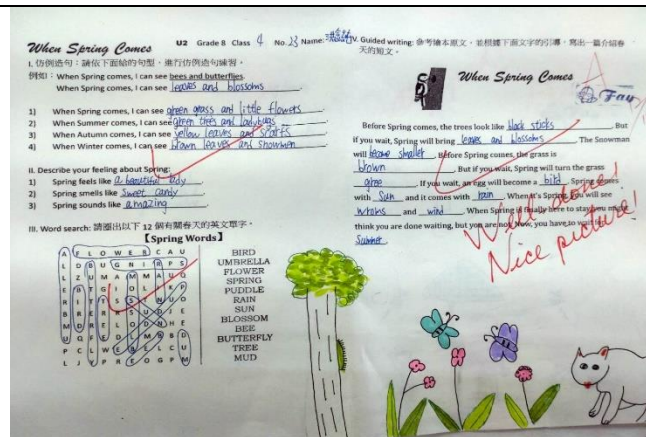 When Spring Comes
U2 Grade 8 Class 4 No. 23 Name:
I. 仿例造句：請依下面給的句型，進行仿例造句練習。
例如：When Spring comes, I can see bees and butterflies.
When Spring comes, I can see leaves and blossoms.
1) When Spring comes, I can see green grass and little flowers.
2) When Summer comes, I can see green trees and ladybugs.
3) When Autumn comes, I can see yellow leaves and scarfs.
4) When Winter comes, I can see brown leaves and snowmen.
II. Describe your feeling about Spring:
1) Spring feels like a beautiful lady.
2) Spring smells like sweet candy.
3) Spring sounds like amazing.
III. Word search: 請圈出以下 12 個有關春天的英文單字。
【Spring Words】
BIRD
UMBRELLA
FLOWER
SPRING
PUDDLE
RAIN
SUN
BLOSSOM
BEE
BUTTERFLY
TREE
MUD
IV. Guided writing: 參考繪本原文，並根據下面文字的引導，寫出一篇介紹春
天的短文。
When Spring Comes
A
Fay
Before Spring comes, the trees look like black sticks. But
if you wait, Spring will bring leaves and blossoms. The Snowman
will become smaller. Before Spring comes, the grass is
brown. But if you wait, Spring will turn the grass
gree. If you wait, an egg will become a bird. Spring comes
with sun and it comes with rain. When it's Spring, you will see
and wind. When Spring is finally here to stay, you
think you are done waiting, but you are not. Now, you have to wait for
Summer.
Well done!
Nice picture!